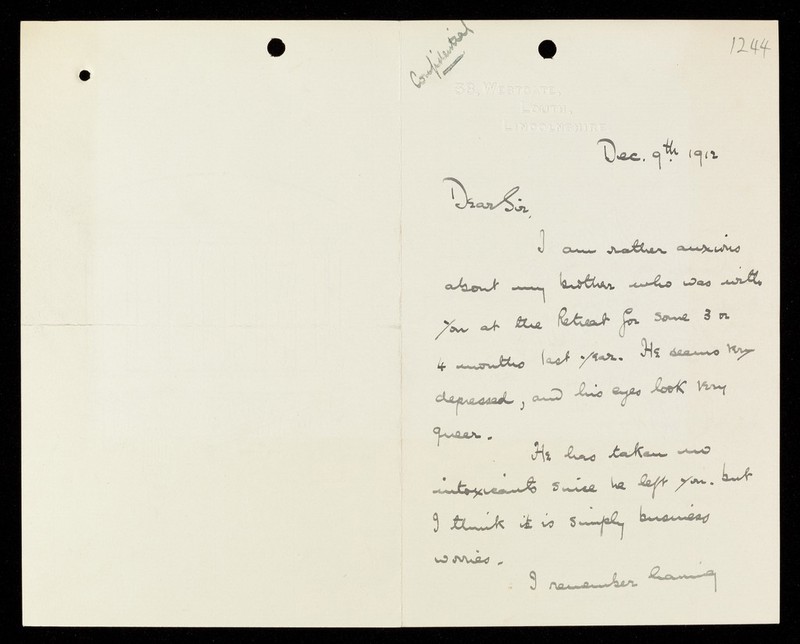 Confidential
1244
38, WESTGATE,
LOUTH,
LINCOLNSHIRE
Dec. 9th 1912
Dear Sir,
I am rather anxious
about my brother who was with
you at the Retreat for some 3 or
4 months last year. He seems very
depressed, and his eyes look very
queer.
He has taken no
intoxicants since he left you. but
I think it is simply business
worries.
I remember having